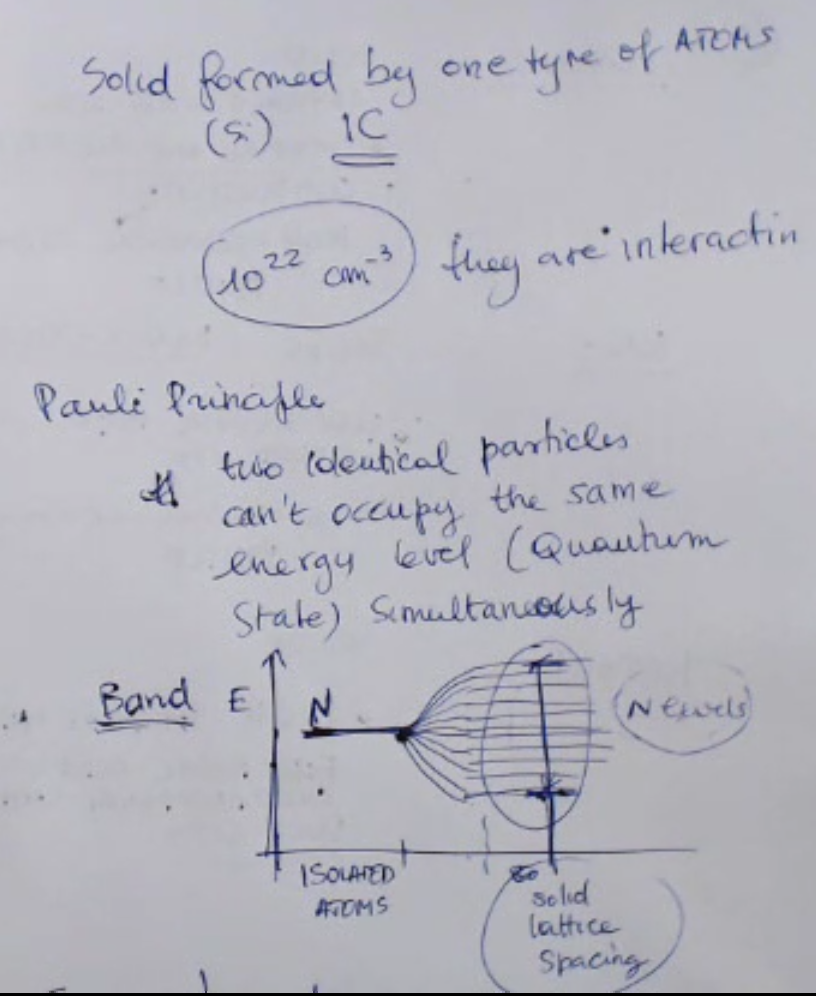 Solid formed by one type of ATOMS
(Si) 1C
10²² cm⁻³ they are interactin
Pauli Principle
two identical particles
can't occupy the same
energy level (Quantum
State) Simultaneously
Band E N N levels
ISOLATED
ATOMS
solid
lattice
spacing